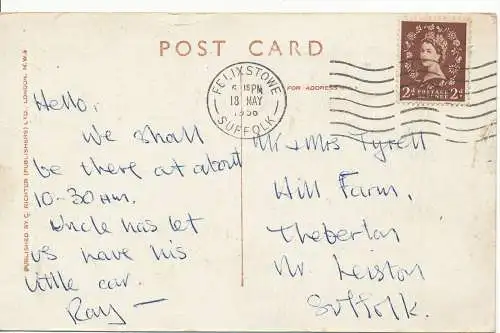 POST CARD
FOR ADDRESS
FELIXSTOWE
6 15PM
18 MAY
1956
SUFFOLK
2D POSTAGE REVENUE 2D
PUBLISHED BY C. RICHTER (PUBLISHERS) LTD. LONDON, N.W.4
Hello.
We shall
be there at about
10-30AM.
Uncle has let
us have his
little car.
Ray —
Mr & Mrs Tyrell
Hill Farm,
Theberton
Nr. Leiston
Suffolk.